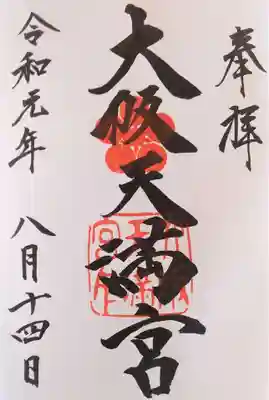 奉拝
大阪天満宮
令和元年 八月十四日